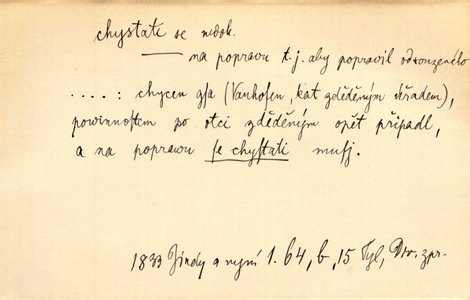 chystati se nedok.
—— na popravu t.j. aby popravil odsouzeného
....: chycen gsa (Vanhofen, kat zděděným úřadem),
powinnostem po otci zděděným opět připadl,
a na poprawu se chystati musj.
1833 Jindy a nyní 1. 64, b, 15 Tyl, Div. zpr.